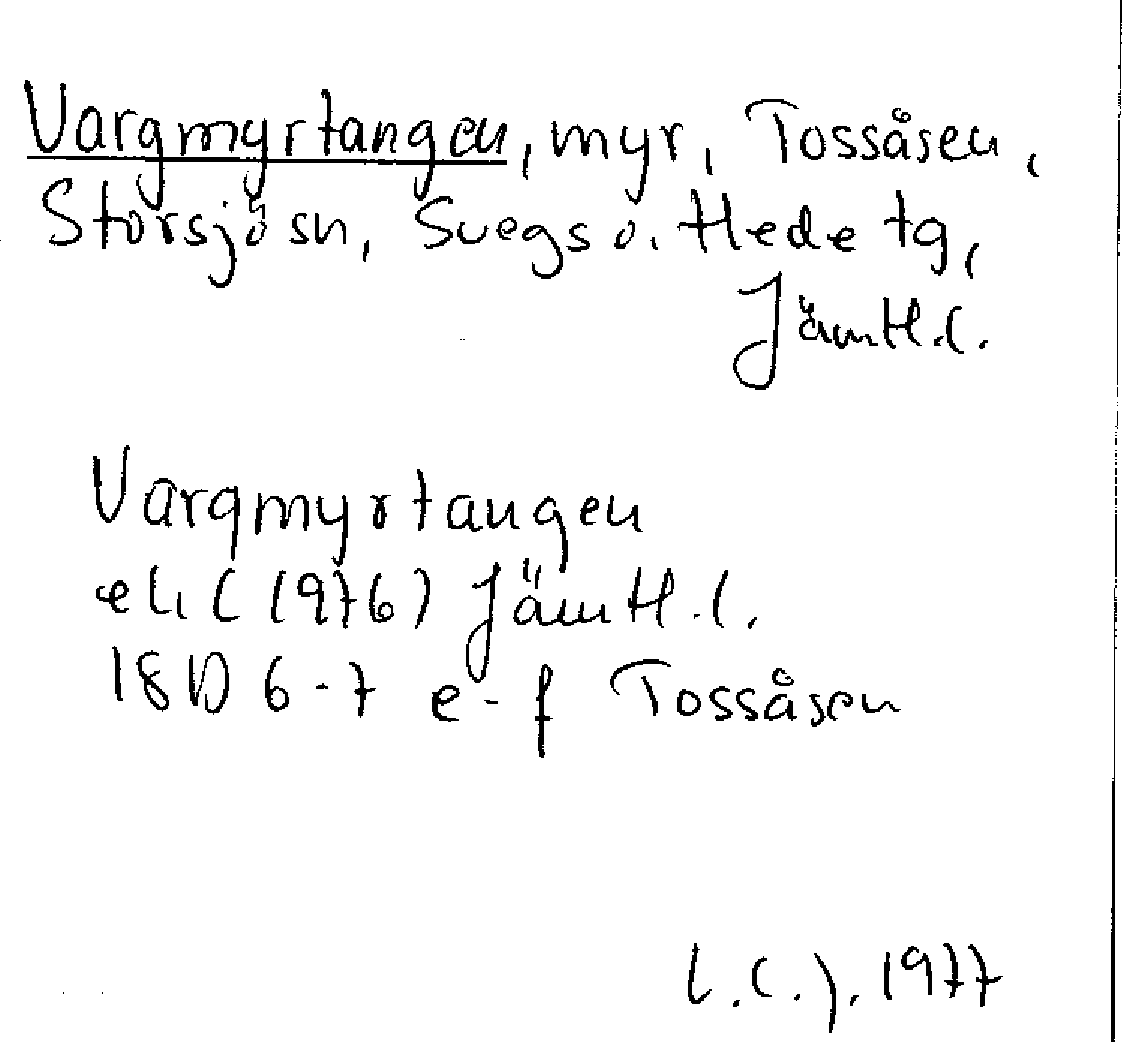 Vargmyrtangen, myr, Tossåsen,
Storsjö sn, Svegs o. Hede tg,
Jämtl.l.
Vargmyrtangen
ek (1976) Jämtl.l.
18D 6-7 e-f Tossåsen
L.C.J. 1977